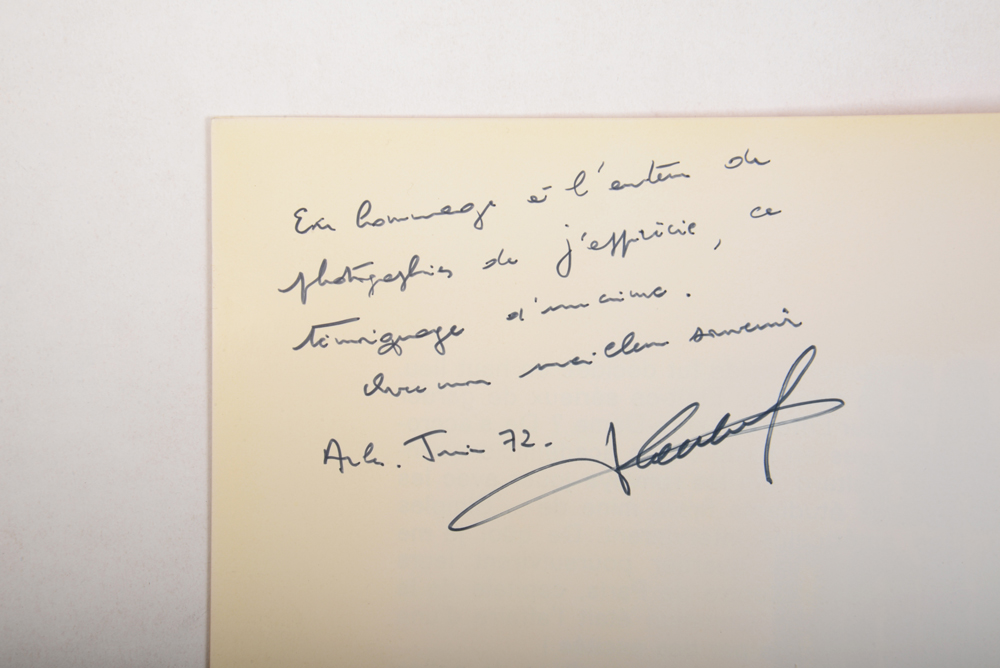 En hommage à l'auteur de
photographies que j'apprécie, ce
témoignage d'un ami.
Avec mon meilleur souvenir
Arles. Juin 72.